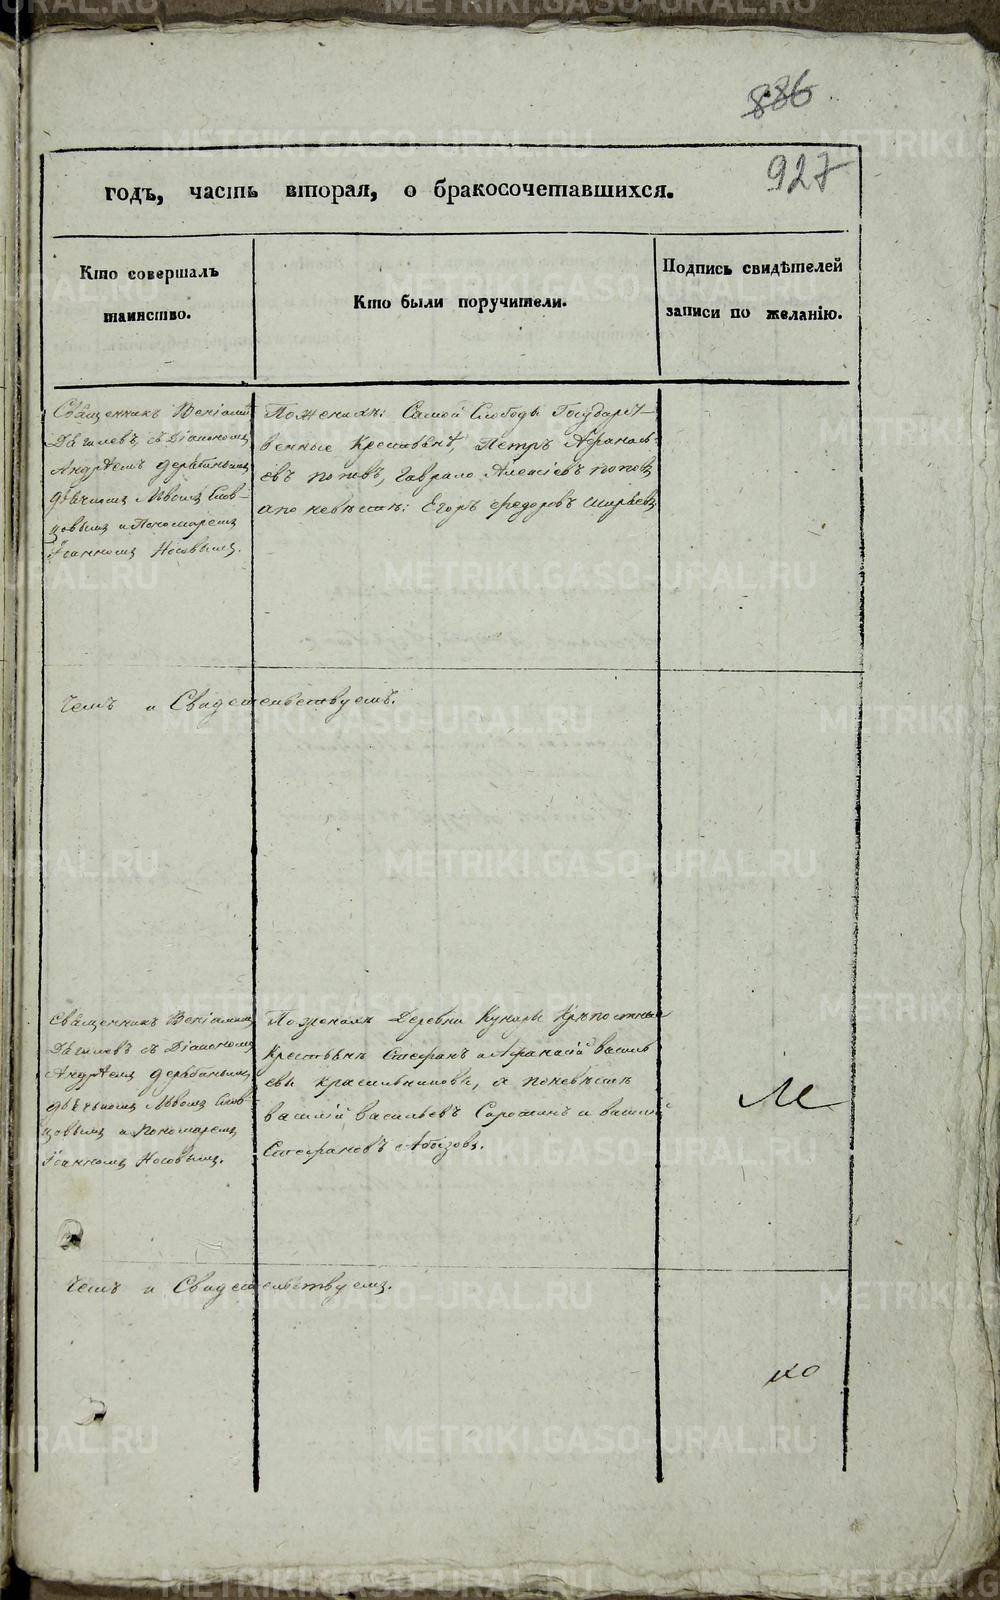 886
927
годъ, часть вторая, о бракосочетавшихся.
Кто совершалъ
таинство.
Кто были поручители.
Подпись свидѣтелей
записи по желанію.
Священникъ Веніаминъ
Дягилевъ, съ Діакономъ
Андрѣемъ Дерябинымъ
дьячкомъ Львомъ Слов-
цовымъ и Пономаремъ
Іоанномъ Носовымъ.
По женихѣ: Самой Слободы Государст-
венные Крестьянѣ, Петръ Афанась-
евъ поповъ, Гаврило Алексѣевъ поповъ
а по невѣстѣ: Егоръ Федоровъ
Чемъ и Свидетельствуемъ.
Священникъ Веніаминъ
Дягилевъ съ Діакономъ
Андрѣемъ Дерябинымъ
дьячкомъ Львомъ Слов-
цовымъ и Пономаремъ
Іоанномъ Носовымъ.
По женихѣ Деревни Кунары Крѣпостныя
Крестьянѣ Стефанъ и Афанасій василь
евы красильниковы, а по невѣстѣ
василій васильевъ Сорокинъ и василій
Стефановъ Абызовъ.
Чемъ и Свидетельствуемъ.
METRIKI.GASO-URAL.RU